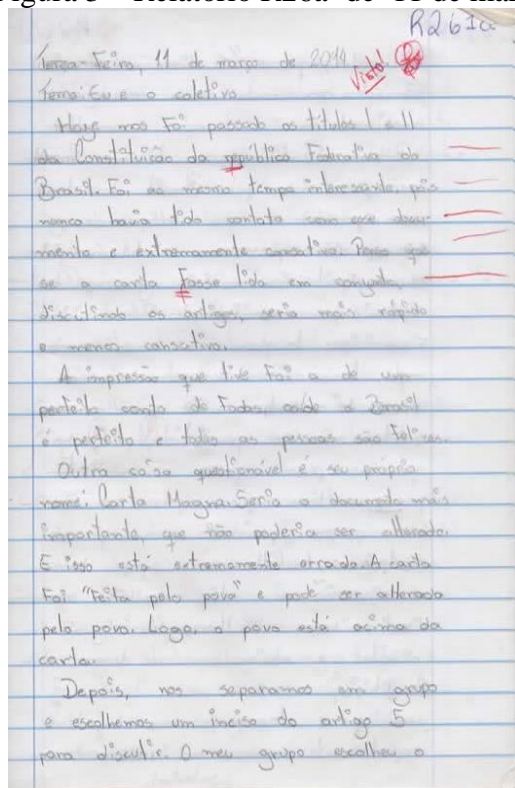 R261a
Terça-Feira, 11 de março de 2014
Visto!
Tema: Eu e o coletivo
Hoje nos Foi passado os títulos I e II
da Constituição da república Federativa do
Brasil. Foi ao mesmo tempo interessante, pois
nunca havia tido contato com esse docu-
mento e extremamente cansativo. Penso que
se a carta Fosse lida em conjunto,
discutindo os artigos, seria mais rápido
e menos cansativo.
A impressão que tive Foi a de um
perfeito conto de Fadas, onde o Brasil
é perfeito e todas as pessoas são Felizes.
Outra coisa questionável é seu próprio
nome: Carta Magna. Seria o documento mais
importante, que não poderia ser alterado.
E isso está extremamente errado. A carta
Foi "Feita pelo povo" e pode ser alterada
pelo povo. Logo, o povo está acima da
carta.
Depois, nos separamos em grupo
e escolhemos um inciso do artigo 5
para discutir. O meu grupo escolheu o